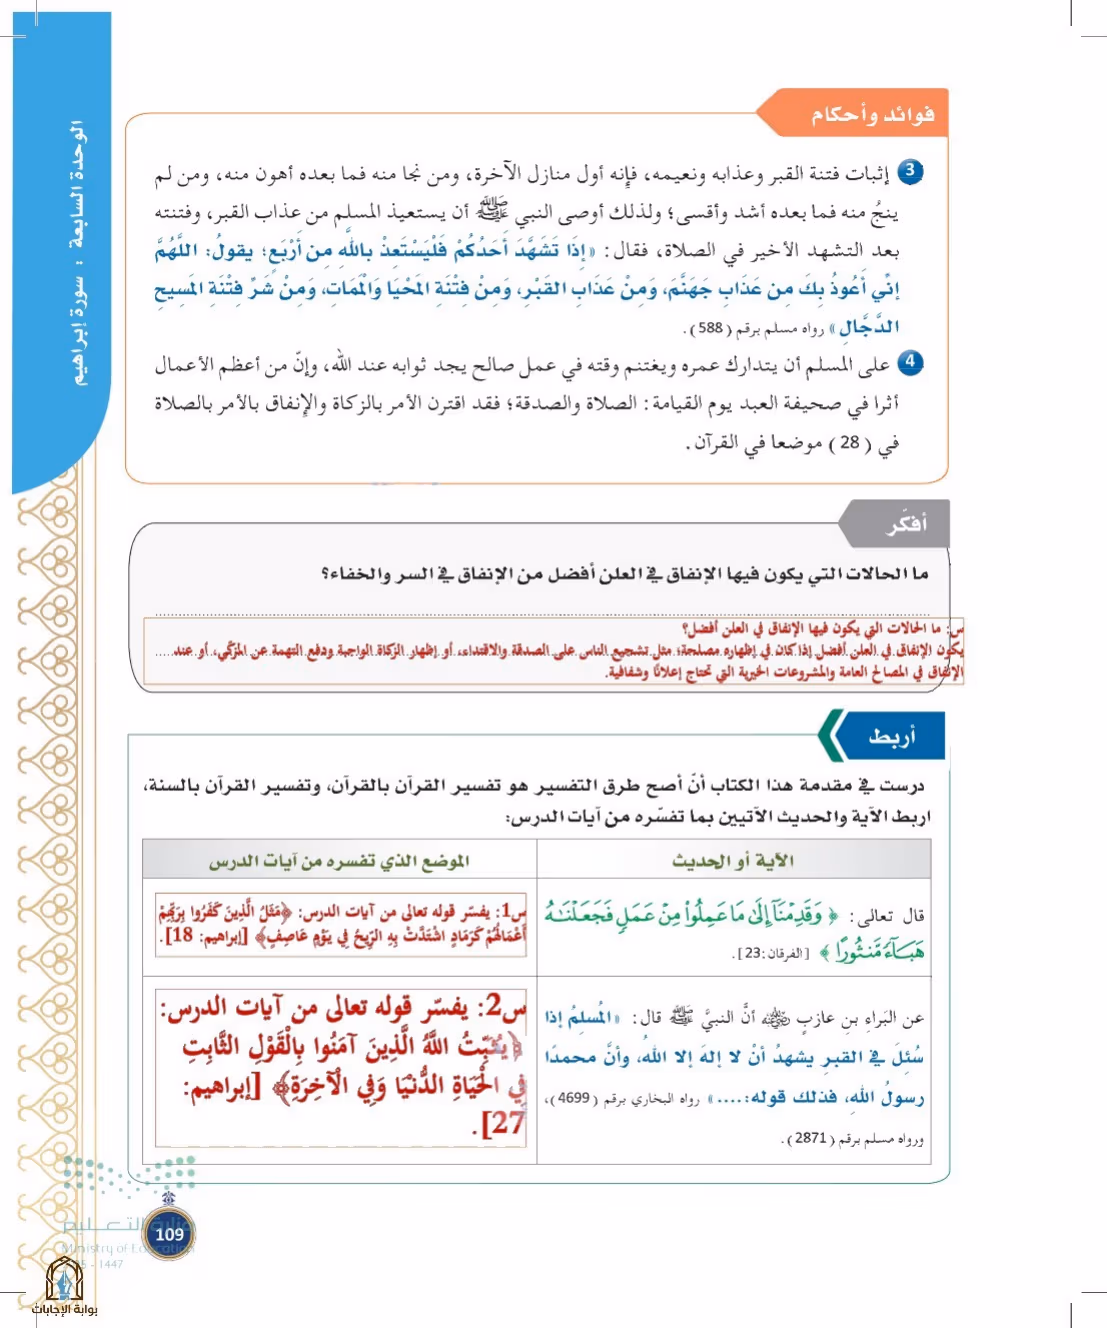 الوحدة السابعة : سورة إبراهيم
فوائد وأحكام
3 إثبات فتنة القبر وعذابه ونعيمه، فإنه أول منازل الآخرة، ومن نجا منه فما بعده أهون منه، ومن لم
ينجُ منه فما بعده أشد وأقسى؛ ولذلك أوصى النبي ﷺ أن يستعيذ المسلم من عذاب القبر، وفتنته
بعد التشهد الأخير في الصلاة، فقال: «إِذَا تَشَهَّدَ أَحَدُكُمْ فَلْيَسْتَعِذْ بِاللَّهِ مِن أَرْبَعٍ؛ يقولُ: اللَّهُمَّ
إنِّي أَعُوذُ بكَ مِن عَذَابِ جَهَنَّمَ، وَمِنْ عَذَابِ القَبْرِ، وَمِنْ فِتْنَةِ المَحْيَا وَالْمَمَاتِ، وَمِنْ شَرِّ فِتْنَةِ المَسِيحِ
الدَّجَّالِ» رواه مسلم برقم (588).
4 على المسلم أن يتدارك عمره ويغتنم وقته في عمل صالح يجد ثوابه عند الله، وإنّ من أعظم الأعمال
أثرا في صحيفة العبد يوم القيامة: الصلاة والصدقة؛ فقد اقترن الأمر بالزكاة والإنفاق بالأمر بالصلاة
في (28) موضعا في القرآن.
أفكّر
ما الحالات التي يكون فيها الإنفاق في العلن أفضل من الإنفاق في السر والخفاء؟
س: ما الحالات التي يكون فيها الإنفاق في العلن أفضل؟
يكون الإنفاق في العلن أفضل إذا كان في إظهاره مصلحة؛ مثل تشجيع الناس على الصدقة والاقتداء، أو إظهار الزكاة الواجبة ودفع التهمة عن المزكّي، أو عند
الإنفاق في المصالح العامة والمشروعات الخيرية التي تحتاج إعلانًا وشفافية.
أربط
درست في مقدمة هذا الكتاب أنّ أصح طرق التفسير هو تفسير القرآن بالقرآن، وتفسير القرآن بالسنة،
اربط الآية والحديث الآتيين بما تفسّره من آيات الدرس:
الآية أو الحديث
الموضع الذي تفسره من آيات الدرس
قال تعالى: ﴿وَقَدِمْنَآ إِلَىٰ مَا عَمِلُوا۟ مِنْ عَمَلٍ فَجَعَلْنَـٰهُ
هَبَآءً مَّنثُورًا﴾ [الفرقان:23].
س1: يفسّر قوله تعالى من آيات الدرس: ﴿مَثَلُ الَّذِينَ كَفَرُوا بِرَبِّهِمْ
أَعْمَالُهُمْ كَرَمَادٍ اشْتَدَّتْ بِهِ الرِّيحُ فِي يَوْمٍ عَاصِفٍ﴾ [إبراهيم: 18].
عن البَراءِ بنِ عازبٍ رضي الله عنه أنَّ النبيَّ ﷺ قال: «المُسلِمُ إذا
سُئلَ في القبرِ يشهدُ أنْ لا إلهَ إلا اللهُ، وأنَّ محمدًا
رسولُ اللهِ، فذلك قوله:....» رواه البخاري برقم (4699)،
ورواه مسلم برقم (2871).
س2: يفسّر قوله تعالى من آيات الدرس:
﴿يُثَبِّتُ اللَّهُ الَّذِينَ آمَنُوا بِالْقَوْلِ الثَّابِتِ
فِي الْحَيَاةِ الدُّنْيَا وَفِي الْآخِرَةِ﴾ [إبراهيم:
27].
وزارة التعليم
109
Ministry of Education
- 1447
بوابة الإجابات